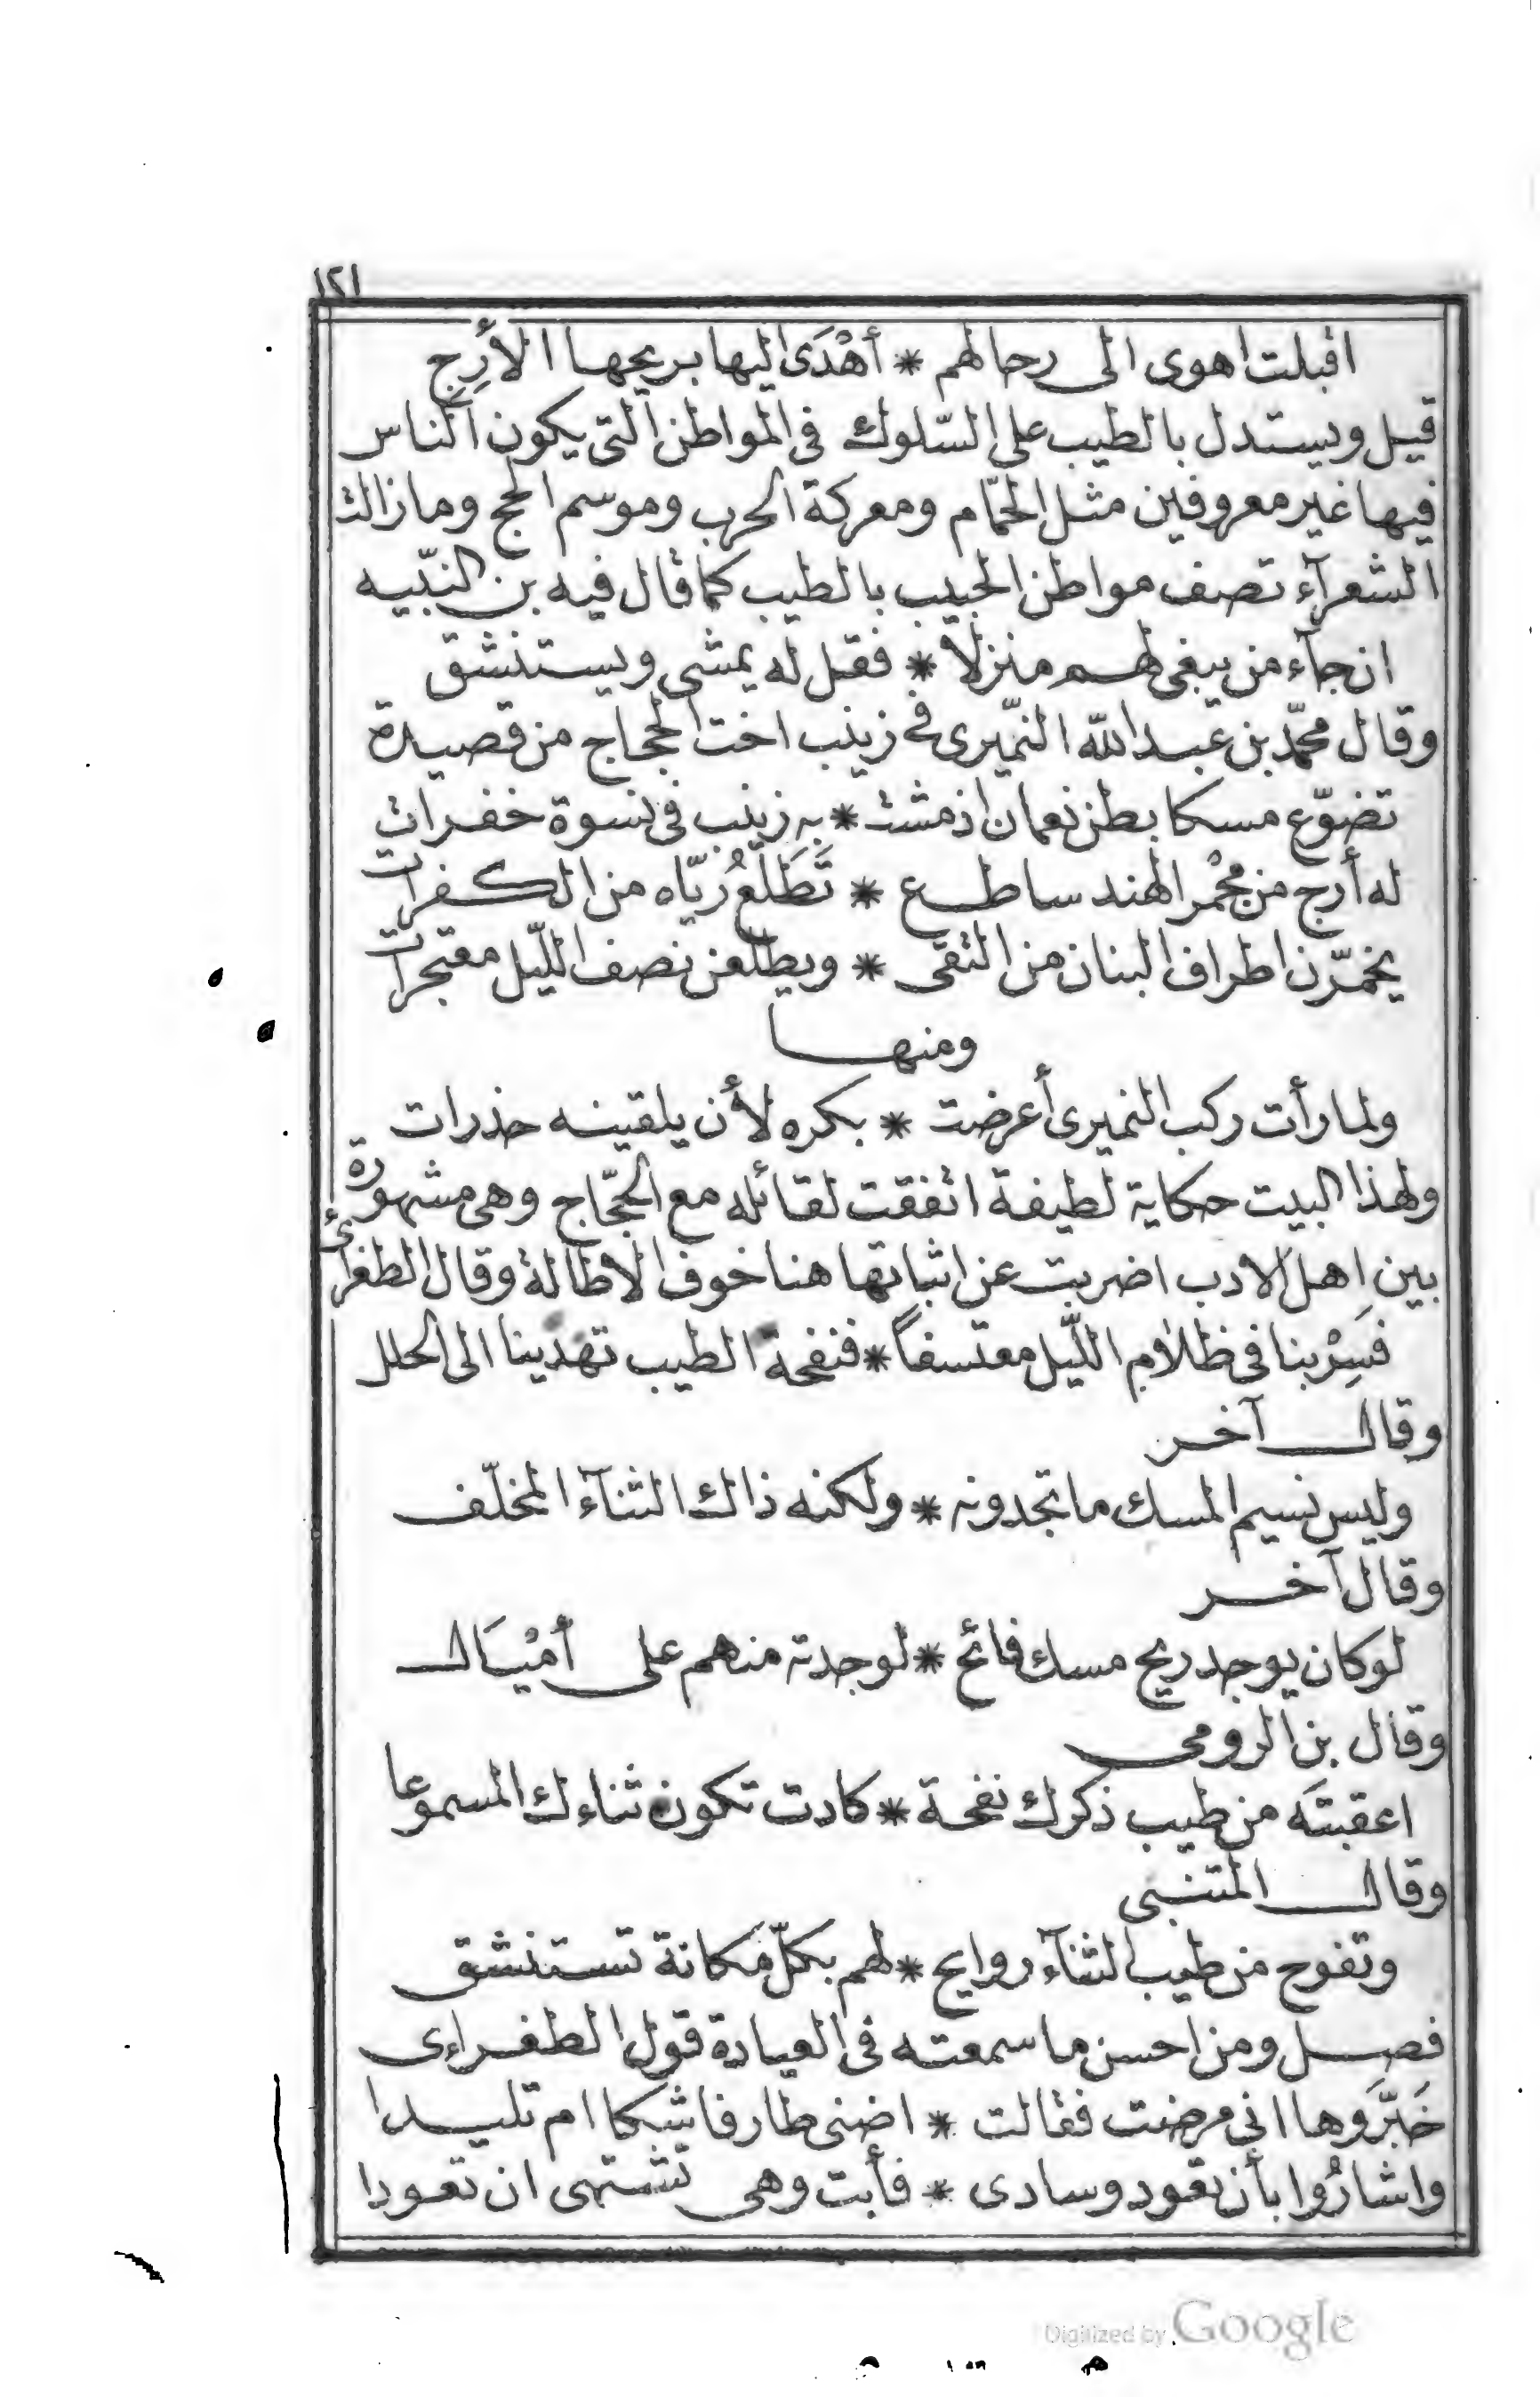 ١٢١
اقبلت اهوى الى رحالهم * أهْدَى اليها بريحها الأرِج
قيل ويستدل بالطيب على السّلوك فى المواطن التى يكون الناس
فيها غير معروفين مثل الحمّام ومعركة الحرب وموسم الحج وما زالت
الشعرآء تصف مواطن الحبيب بالطيب كما قال فيه بن النّبيه
ان جآء من يبغى لهم منزلا * فقل له يمشى ويستنشق
وقال محمّد بن عبد الله النّميرى فى زينب اخت الحجاج من قصيدة
تضوّع مسكا بطن نعمان اذ مشت * به زينب فى نسوة خفرات
له أرج من مجْمُر الهند ساطع * تَطَلّعُ رَيّاه من الكفرات
يخمّرن اطراف البنان من التقى * ويطلعن نصف اللّيل معتجرات
ومنها
ولما رأت ركب النميرى أعرضت * بكره لأن يلقينه حذرات
ولهذا البيت حكاية لطيفة اتفقت لقائله مع الحجّاج وهى مشهورة
بين اهل الادب اضربت عن اثباتها هنا خوف الاطالة وقال الطغرائى
فَسِرْ بنا فى ظلام اللّيل معتسفاً * فنفحة الطيب تهدينا الى الحلل
وقال آخر
وليس نسيم المسك ما تجدونه * ولكنه ذاك الثنآء المخلّف
وقال آخر
لو كان يوجد ريح مسك فائح * لوجدته منهم على أمْيَال
وقال بن الرومى
اعقبتَه من طيب ذكرك نفحة * كادت تكون ثناءك المسموعا
وقال المتنبى
وتفوح من طيب الثنآء روايح * لهم بكلّ مكانة تستنشق
فصل ومن احسن ما سمعته فى العيادة قول الطغراءى
خَبَّرَوها انى مرضت فقالت * اضنى طارفا شكا ام تليدا
واشارُوا بأن تعود وسادى * فأبت وهى تشتهى ان تعودا
Digitized by Google